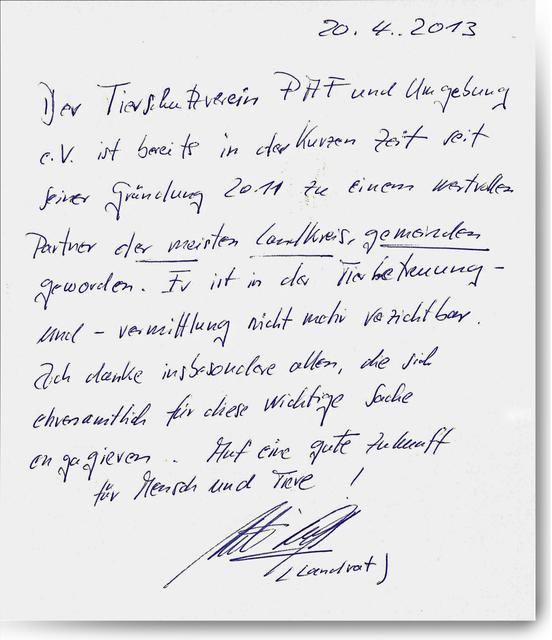 20.4.2013
Der Tierschutzverein PAF und Umgebung
e.V. ist bereits in der kurzen Zeit seit
seiner Gründung 2011 zu einem wertvollen
Partner der meisten Landkreis, gemeinden
geworden. Er ist in der Tierbetreuung -
und - vermittlung nicht mehr verzichtbar.
Ich danke insbesondere allen, die sich
ehrenamtlich für diese wichtige Sache
engagieren. Auf eine gute Zukunft
für Mensch und Tiere !
(Landrat)